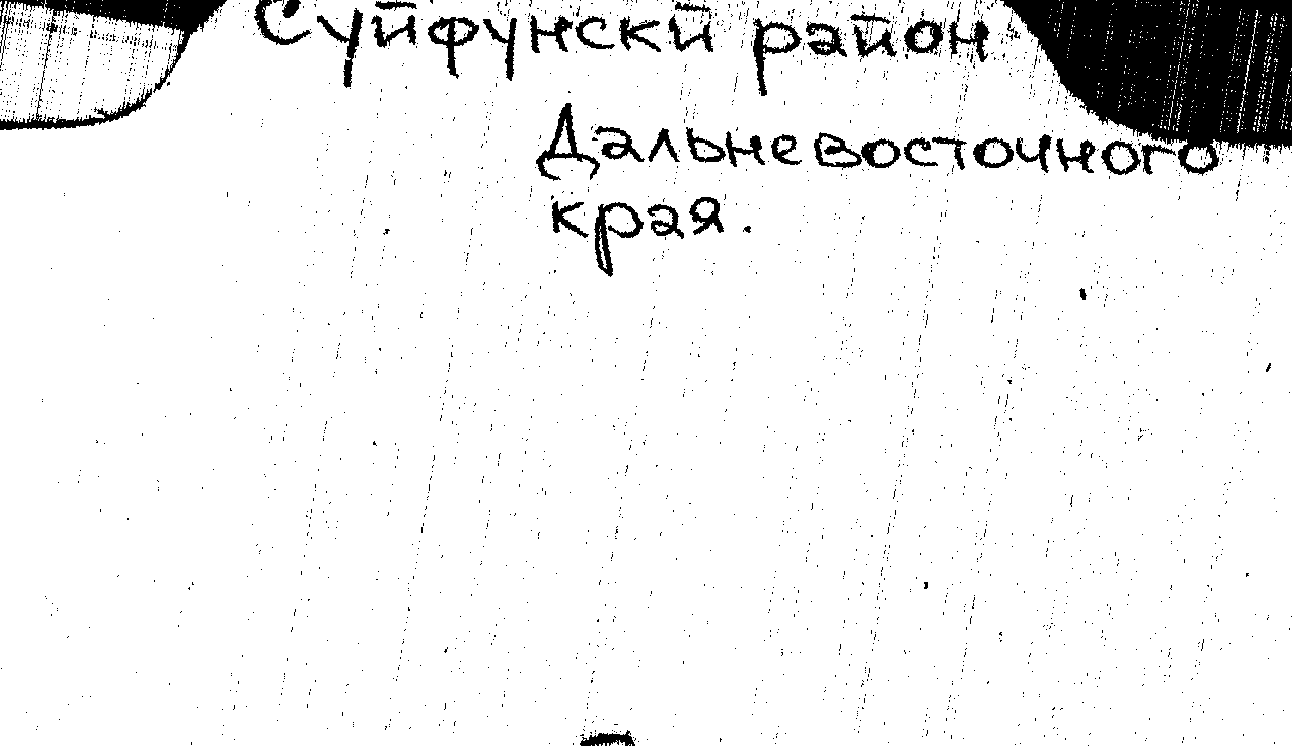 Суйфунскй район
Дальневосточного
края.